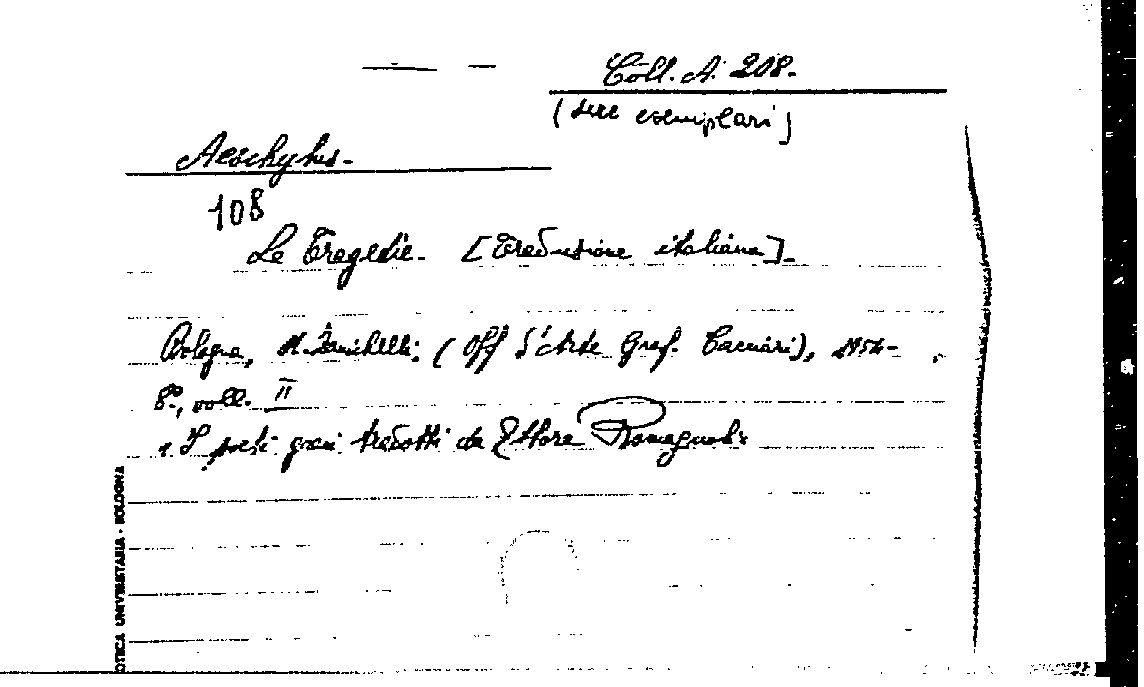 Coll. A. 208.
(due esemplari)
Aeschylus.
108
Le Tragedie. [Traduzione italiana].
Bologna, N. Zanichelli, (Off d'Arte Graf. Cacciari),
8º, voll. II
I poeti greci tradotti da Ettore Romagnoli
OTECA UNIVERSITARIA - BOLOGNA